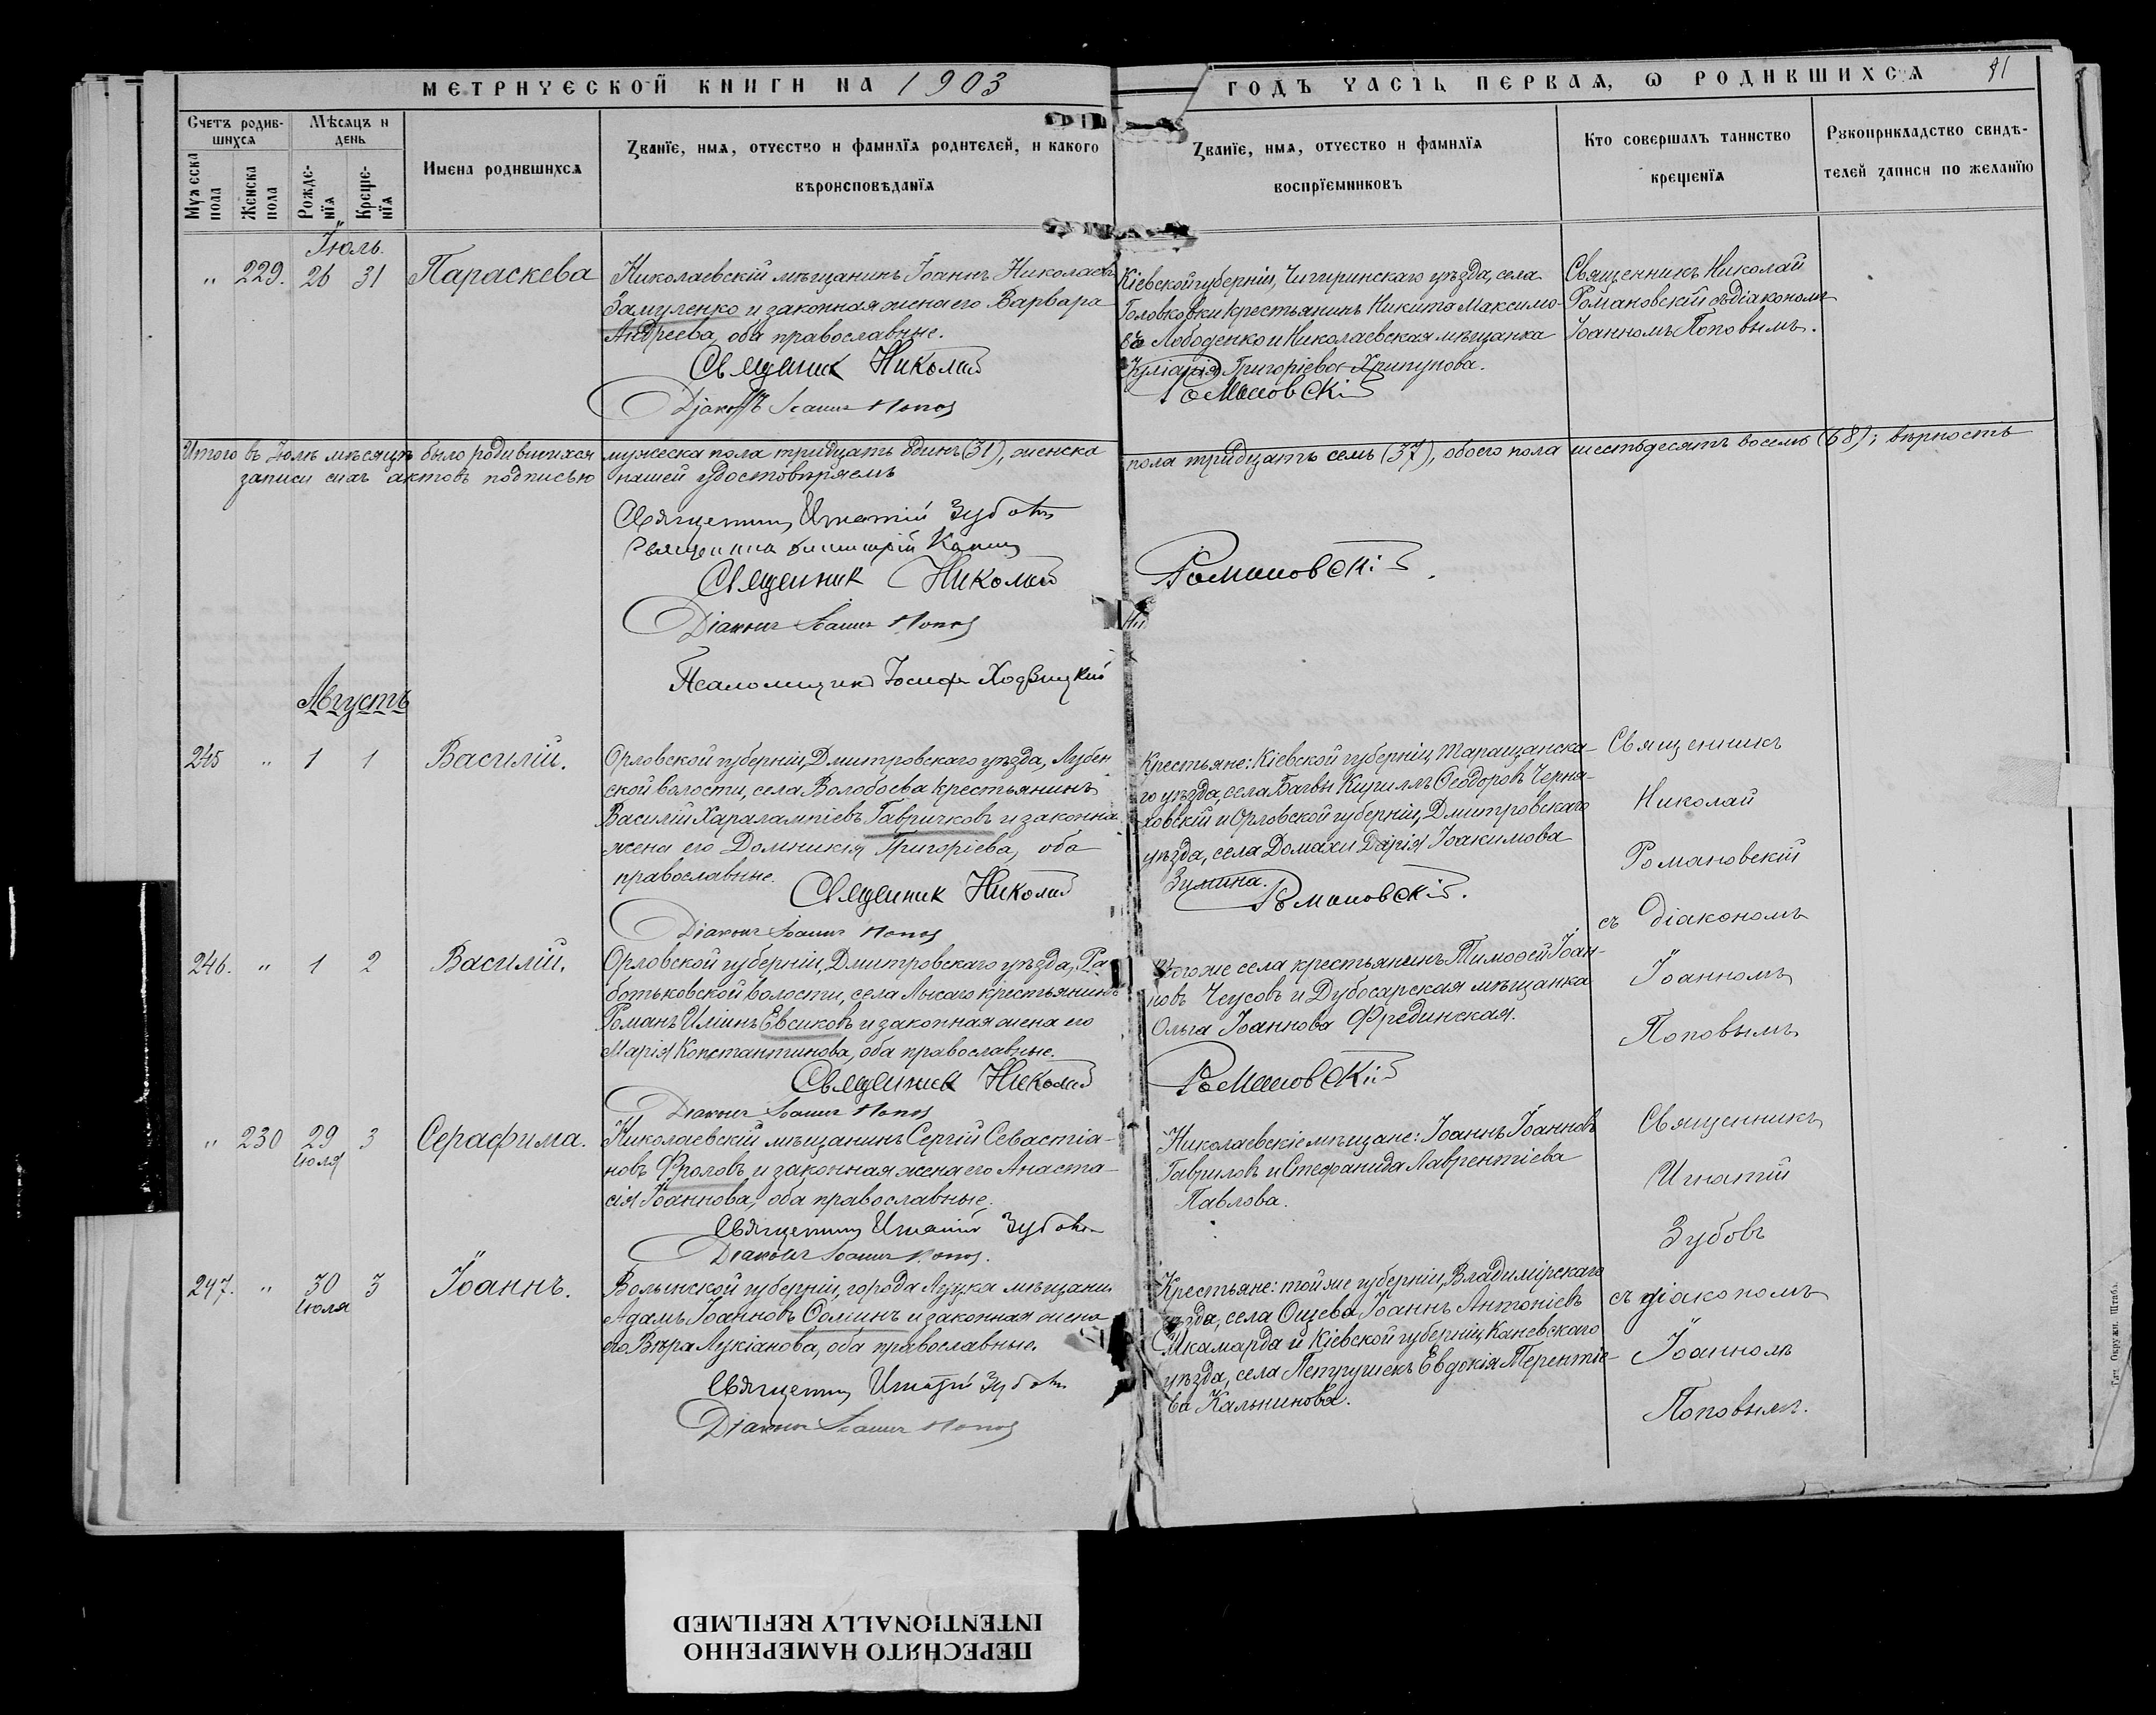 МЕТРИЧЕСКОЙ КНИГИ НА 1903
ГОДЪ ЧАСТЬ ПЕРВАЯ, Ѡ РОДИВШИХСЯ
Счетъ родив-
шихся
Мѣсяцъ и
день
Мужеска
пола
Женска
пола
Рожде-
нїя
Креще-
нїя
Имена родившихся
Званїе, имя, отчество и фамилїя родителей, и какого
вѣроисповѣданїя
Званїе, имя, отчество и фамилїя
воспрїемниковъ
Кто совершалъ таинство
крещенїя
Рукоприкладство свидѣ-
телей записи по желанїю
Іюль.
" 229. 26 31 Параскева
Николаевскій мѣщанинъ Іоаннъ Николаевъ
Замуленко и законная жена его Варвара
Андреева, оба православные.
Священник Николай
Діаконъ Іоаннъ Попов
Кіевской губерніи, Чигиринскаго уѣзда, села
Головковки крестьянинъ Никита Максимо-
въ Лободенко и Николаевская мѣщанка
Григоріева Хрипунова.
Романовскій
Священникъ Николай
Романовскій съ діакономъ
Іоанномъ Поповымъ.
Итого въ Іюлѣ мѣсяцѣ было родившихся мужеска пола тридцать одинъ (31), женска пола тридцать семь (37), обоего пола шестьдесятъ восемь (68); вѣрность
записи сихъ актовъ подписью нашей удостовѣряемъ
Священникъ Игнатій Зубовъ
Священник Николай Романовскій.
Діаконъ Іоаннъ Попов
Псаломщикъ Іосифъ Ходзицкій
Августъ
245 " 1 1 Василій.
Орловской губерніи, Дмитровскаго уѣзда, Лубен
ской волости, села Волобоева крестьянинъ
Василій Харалампіевъ Гавричковъ и законна
жена его Домникія Григоріева, оба
православные.
Священник Николай
Діаконъ Іоаннъ Попов
Крестьяне: Кіевской губерніи, Таращанска-
го уѣзда, села Багвы Кириллъ Ѳеодоровъ Черня-
ховскій и Орловской губерніи, Дмитровскаго
уѣзда, села Домахи Дарія Іоакимова
Зимина.
Романовскій.
Священникъ
Николай
Романовскій
съ діакономъ
Іоанномъ
Поповымъ
246. " 1 2 Василій.
Орловской губерніи, Дмитровскаго уѣзда, Ра
ботьковской волости, села Лысаго крестьянинъ
Романъ Иліинъ Евсиковъ и законная жена его
Марія Константинова, оба православные.
Священник Николай
Діаконъ Іоаннъ Попов
Того же села крестьянинъ Тимоѳей Іоан-
новъ Чеусовъ и Дубосарская мѣщанка
Ольга Іоаннова Фрединская.
Романовскій
" 230 29 3 Серафима.
Іюля
Николаевскій мѣщанинъ Сергій Севастіа-
новъ Фроловъ и законная жена его Анаста-
сія Іоаннова, оба православные.
Священникъ Игнатій Зубовъ
Діаконъ Іоаннъ Попов.
Николаевскіе мѣщане: Іоаннъ Іоанновъ
Гавриловъ и Стефанида Лаврентіева
Павлова.
Священникъ
Игнатій
Зубовъ
съ діакономъ
Іоанномъ
Поповымъ.
247. " 30 3 Іоаннъ.
Іюля
Волынской губерніи, города Луцка мѣщанин
Адамъ Іоанновъ и законная жена
его Вѣра Лукіанова, оба православные.
Священникъ Игнатій Зубовъ
Діаконъ Іоаннъ Попов
Крестьяне: той же губерніи, Владимірскаго
уѣзда, села Ощева, Іоаннъ Антоніевъ
Шкамарда и Кіевской губерніи, Каневскаго
уѣзда, села Петрушекъ Евдокія Терентіе-
ва Кальнинова.
Тип. Окружн. Штаба.
ПЕРЕСНЯТО НАМЕРЕННО
INTENTIONALLY REFILMED